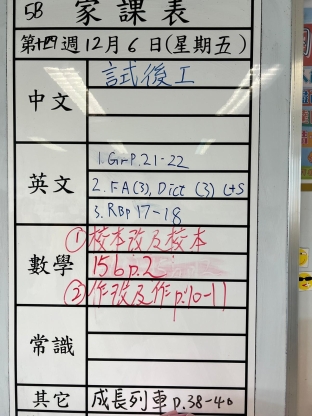 5B 家課表
第十四週 12月6日(星期五)
中文 試後工
英文 1. GrP.21-22
2. FA(3), Dict (3) C+S
3. RBp 17-18
數學 ① 校本改及校本
15b p.2
② 作改及作p.10-11
常識
其它 成長列車 p.38-40